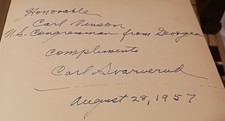 Honorable
Carl Vinson
U.S. Congressman from Georgia
Compliments
Carl
August 28, 1957